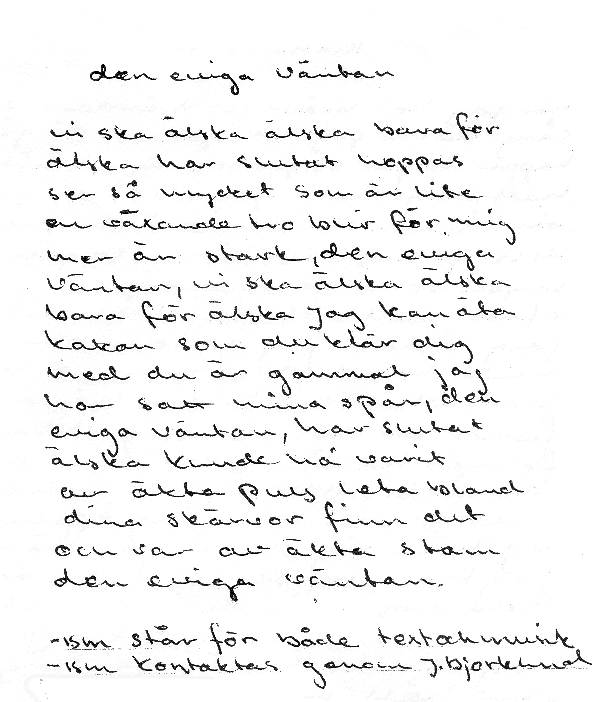 den eviga väntan
vi ska älska älska bara för
älska har slutat hoppas
ser så mycket som är lite
en växande tro blir för mig
mer än stark, den eviga
väntan, vi ska älska älska
bara för älska jag kan äta
kakan som du klär dig
med du är gammal jag
har satt mina spår, den
eviga väntan, har slutat
älska kunde ha varit
av äkta puls leta bland
dina skärvor finn det
och var av äkta stam
den eviga väntan.
-ism står för både text och musik
-ism kontaktas genom J. Björklund